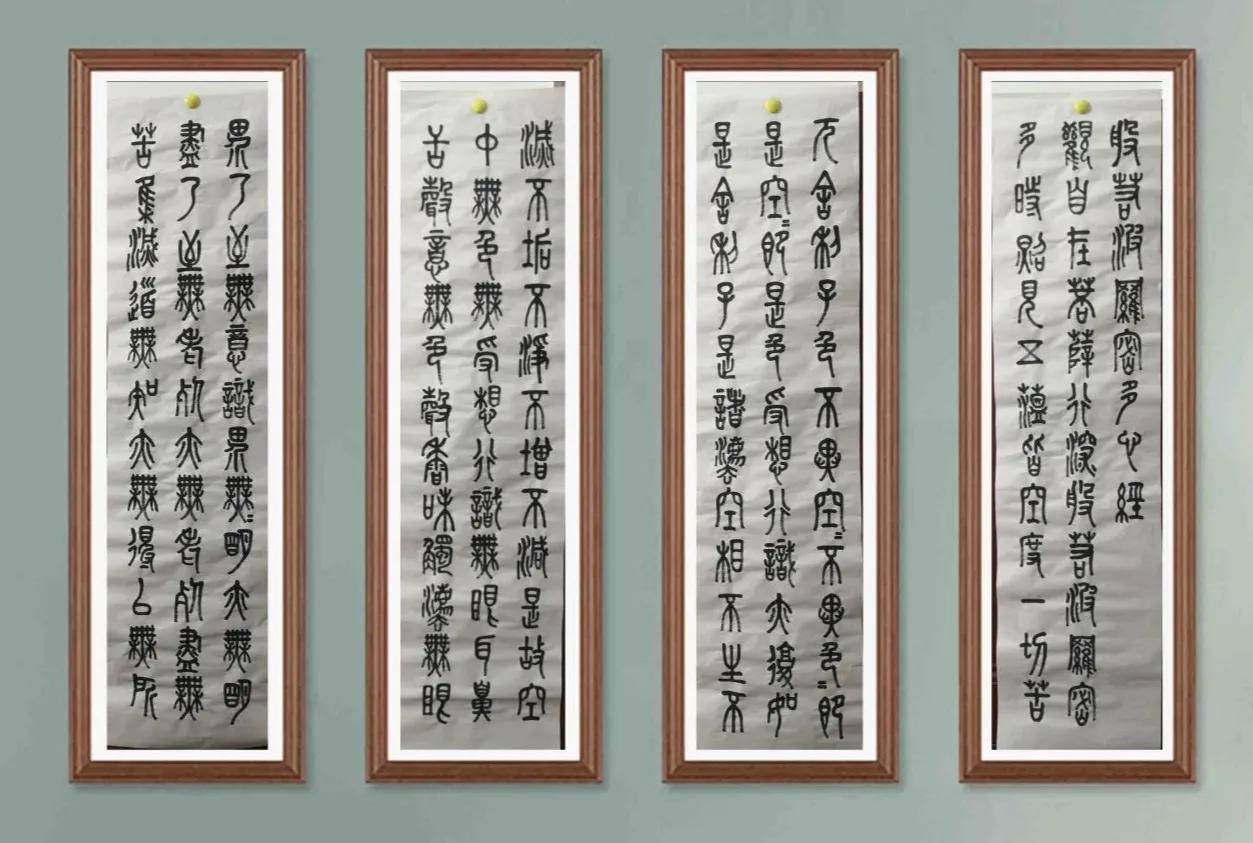 般若波羅密多心經
觀自在菩薩行深般若波羅密
多時照見五蘊皆空度一切苦
厄舍利子色不異空〻不異色〻即
是空〻即是色受想行識亦復如
是舍利子是諸法空相不生不
滅不垢不淨不增不減是故空
中無色無受想行識無眼耳鼻
舌聲意無色聲香味觸法無眼
界乃至無意識界無〻明亦無明
盡乃至無老死亦無老死盡無
苦集滅道無知亦無得以無所